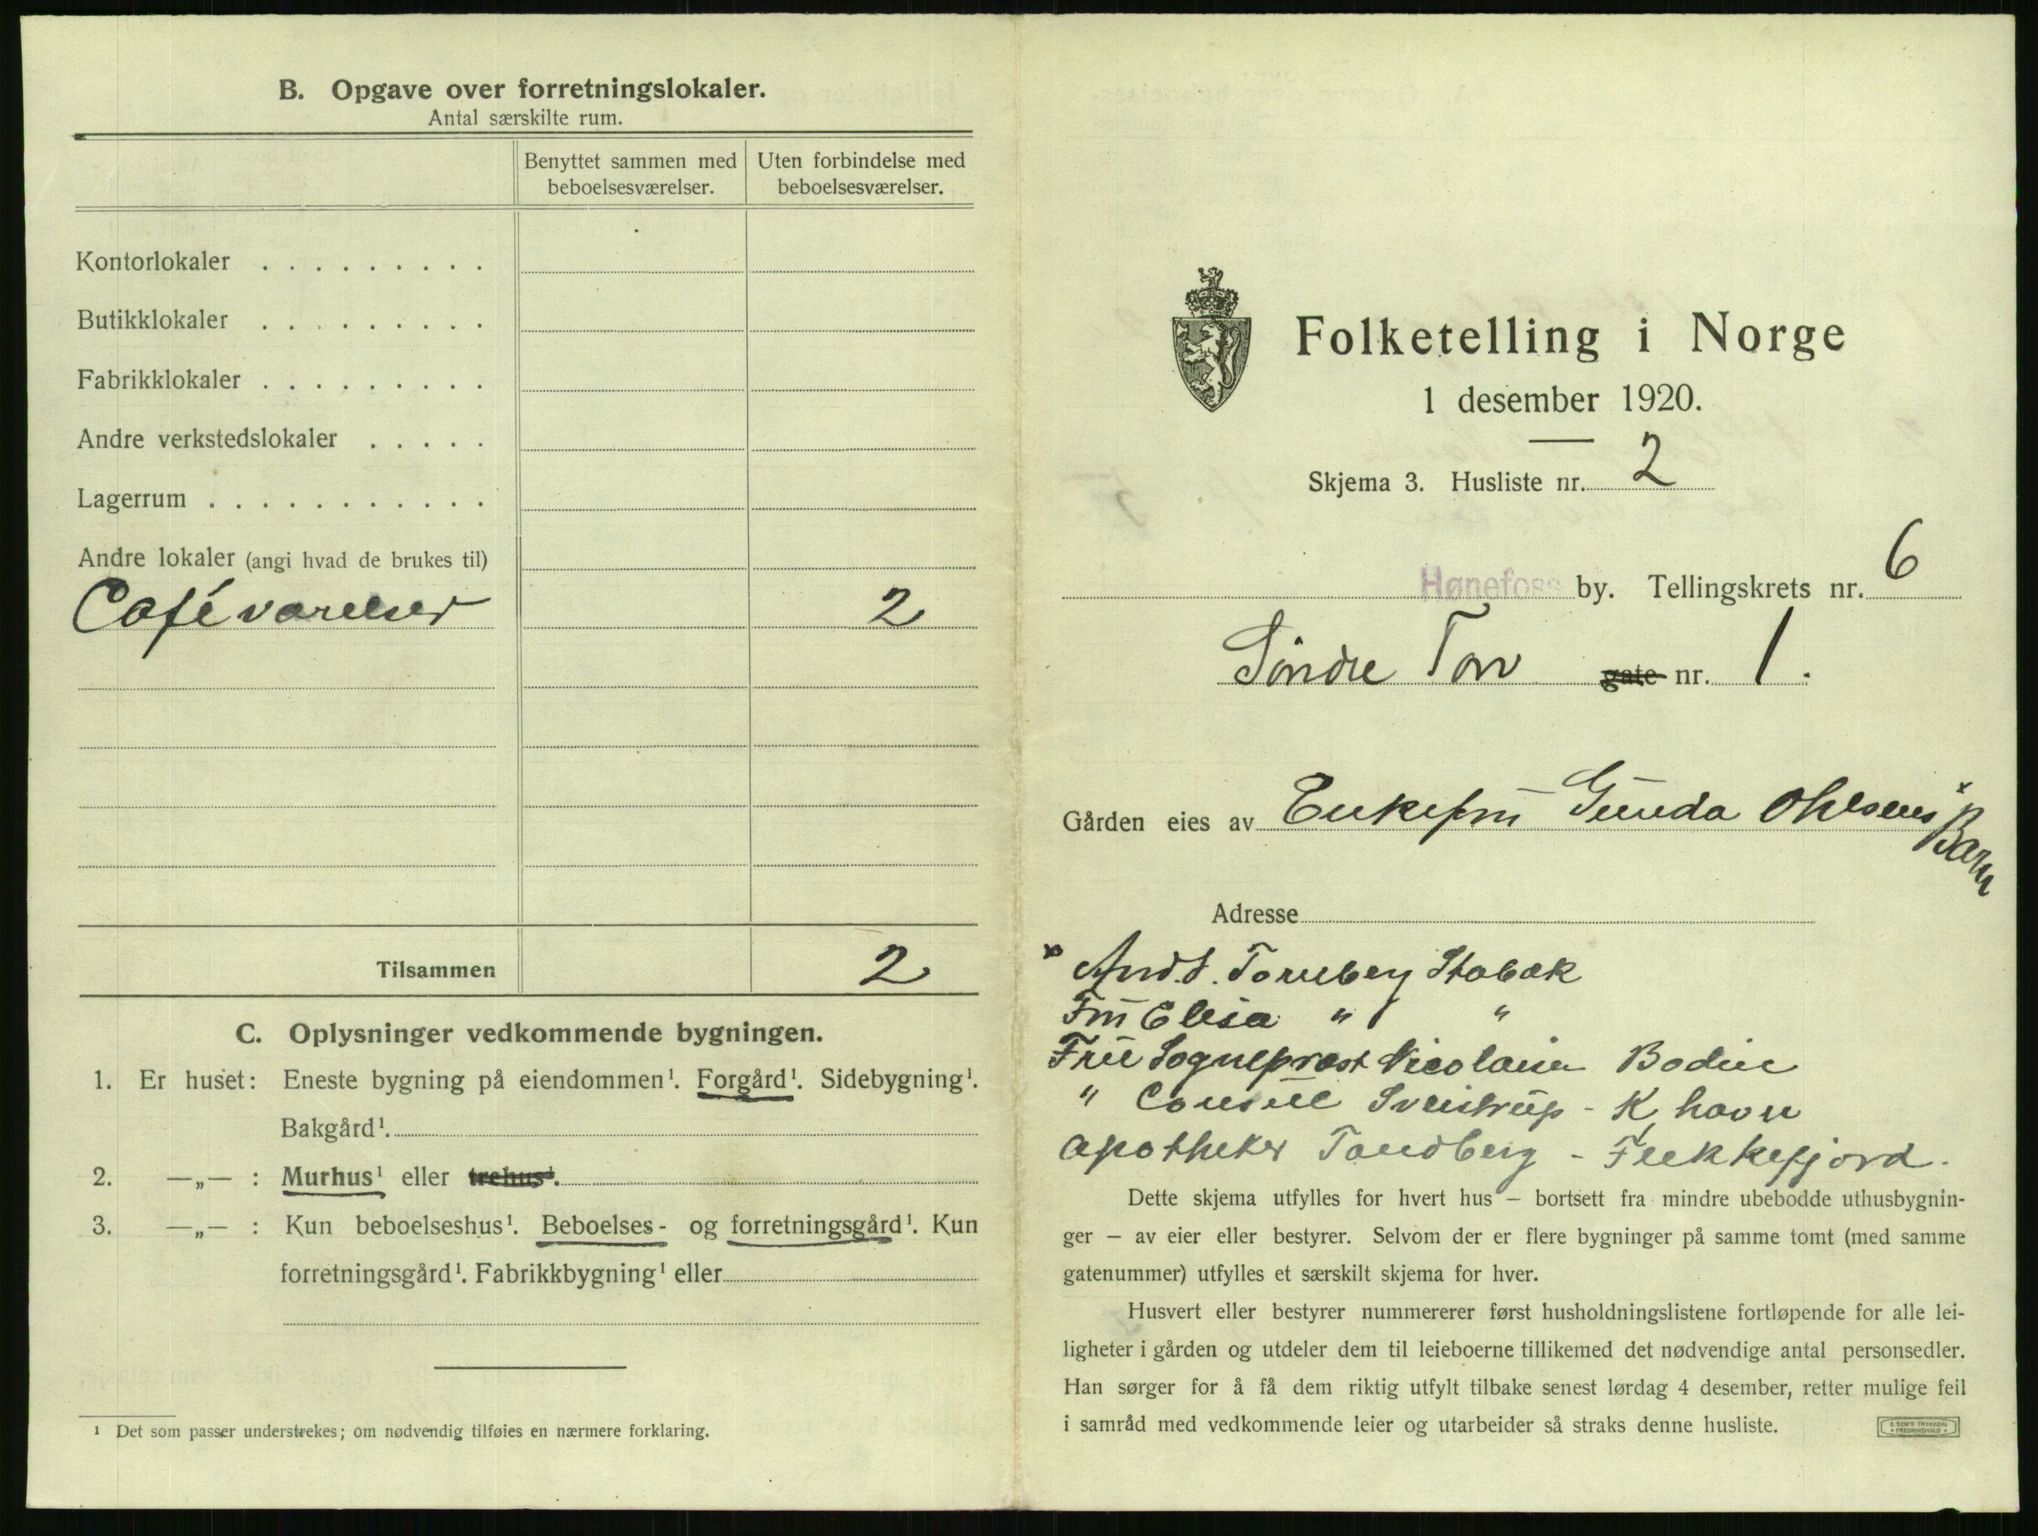 B. Opgave over forretningslokaler.
Antal særskilte rum.
Benyttet sammen med beboelsesværelser.
Uten forbindelse med beboelsesværelser.
Kontorlokaler . . . . . . . . .
Butikklokaler . . . . . . . . .
Fabrikklokaler . . . . . . . . .
Andre verkstedslokaler . . . . .
Lagerrum . . . . . . . . . . .
Andre lokaler (angi hvad de brukes til)
Caféværelser 2
Tilsammen 2
C. Oplysninger vedkommende bygningen.
1. Er huset: Eneste bygning på eiendommen¹. Forgård¹. Sidebygning¹.
Bakgård¹.
2. —„— : Murhus¹ eller trehus¹.
3. —„— : Kun beboelseshus¹. Beboelses- og forretningsgård¹. Kun
forretningsgård¹. Fabrikkbygning¹ eller
¹ Det som passer understrekes; om nødvendig tilføies en nærmere forklaring.
Folketelling i Norge
1 desember 1920.
Skjema 3. Husliste nr. 2
Hønefoss by. Tellingskrets nr. 6
Søndre Torv gate nr. 1.
Gården eies av Enkefru Gunda Ohlsens x Barn
Adresse
x Andr. Tornberg Stabæk
Fru Elisa " "
Frue Sogneprest Nicolaisen Bodin
" Consul Sveistrup - K havn
Apotheker Tandberg - Flekkefjord.
Dette skjema utfylles for hvert hus — bortsett fra mindre ubebodde uthusbygnin-
ger — av eier eller bestyrer. Selvom der er flere bygninger på samme tomt (med samme
gatenummer) utfylles et særskilt skjema for hver.
Husvert eller bestyrer nummererer først husholdningslistene fortløpende for alle lei-
ligheter i gården og utdeler dem til leieboerne tillikemed det nødvendige antal personsedler.
Han sørger for å få dem riktig utfylt tilbake senest lørdag 4 desember, retter mulige feil
i samråd med vedkommende leier og utarbeider så straks denne husliste.